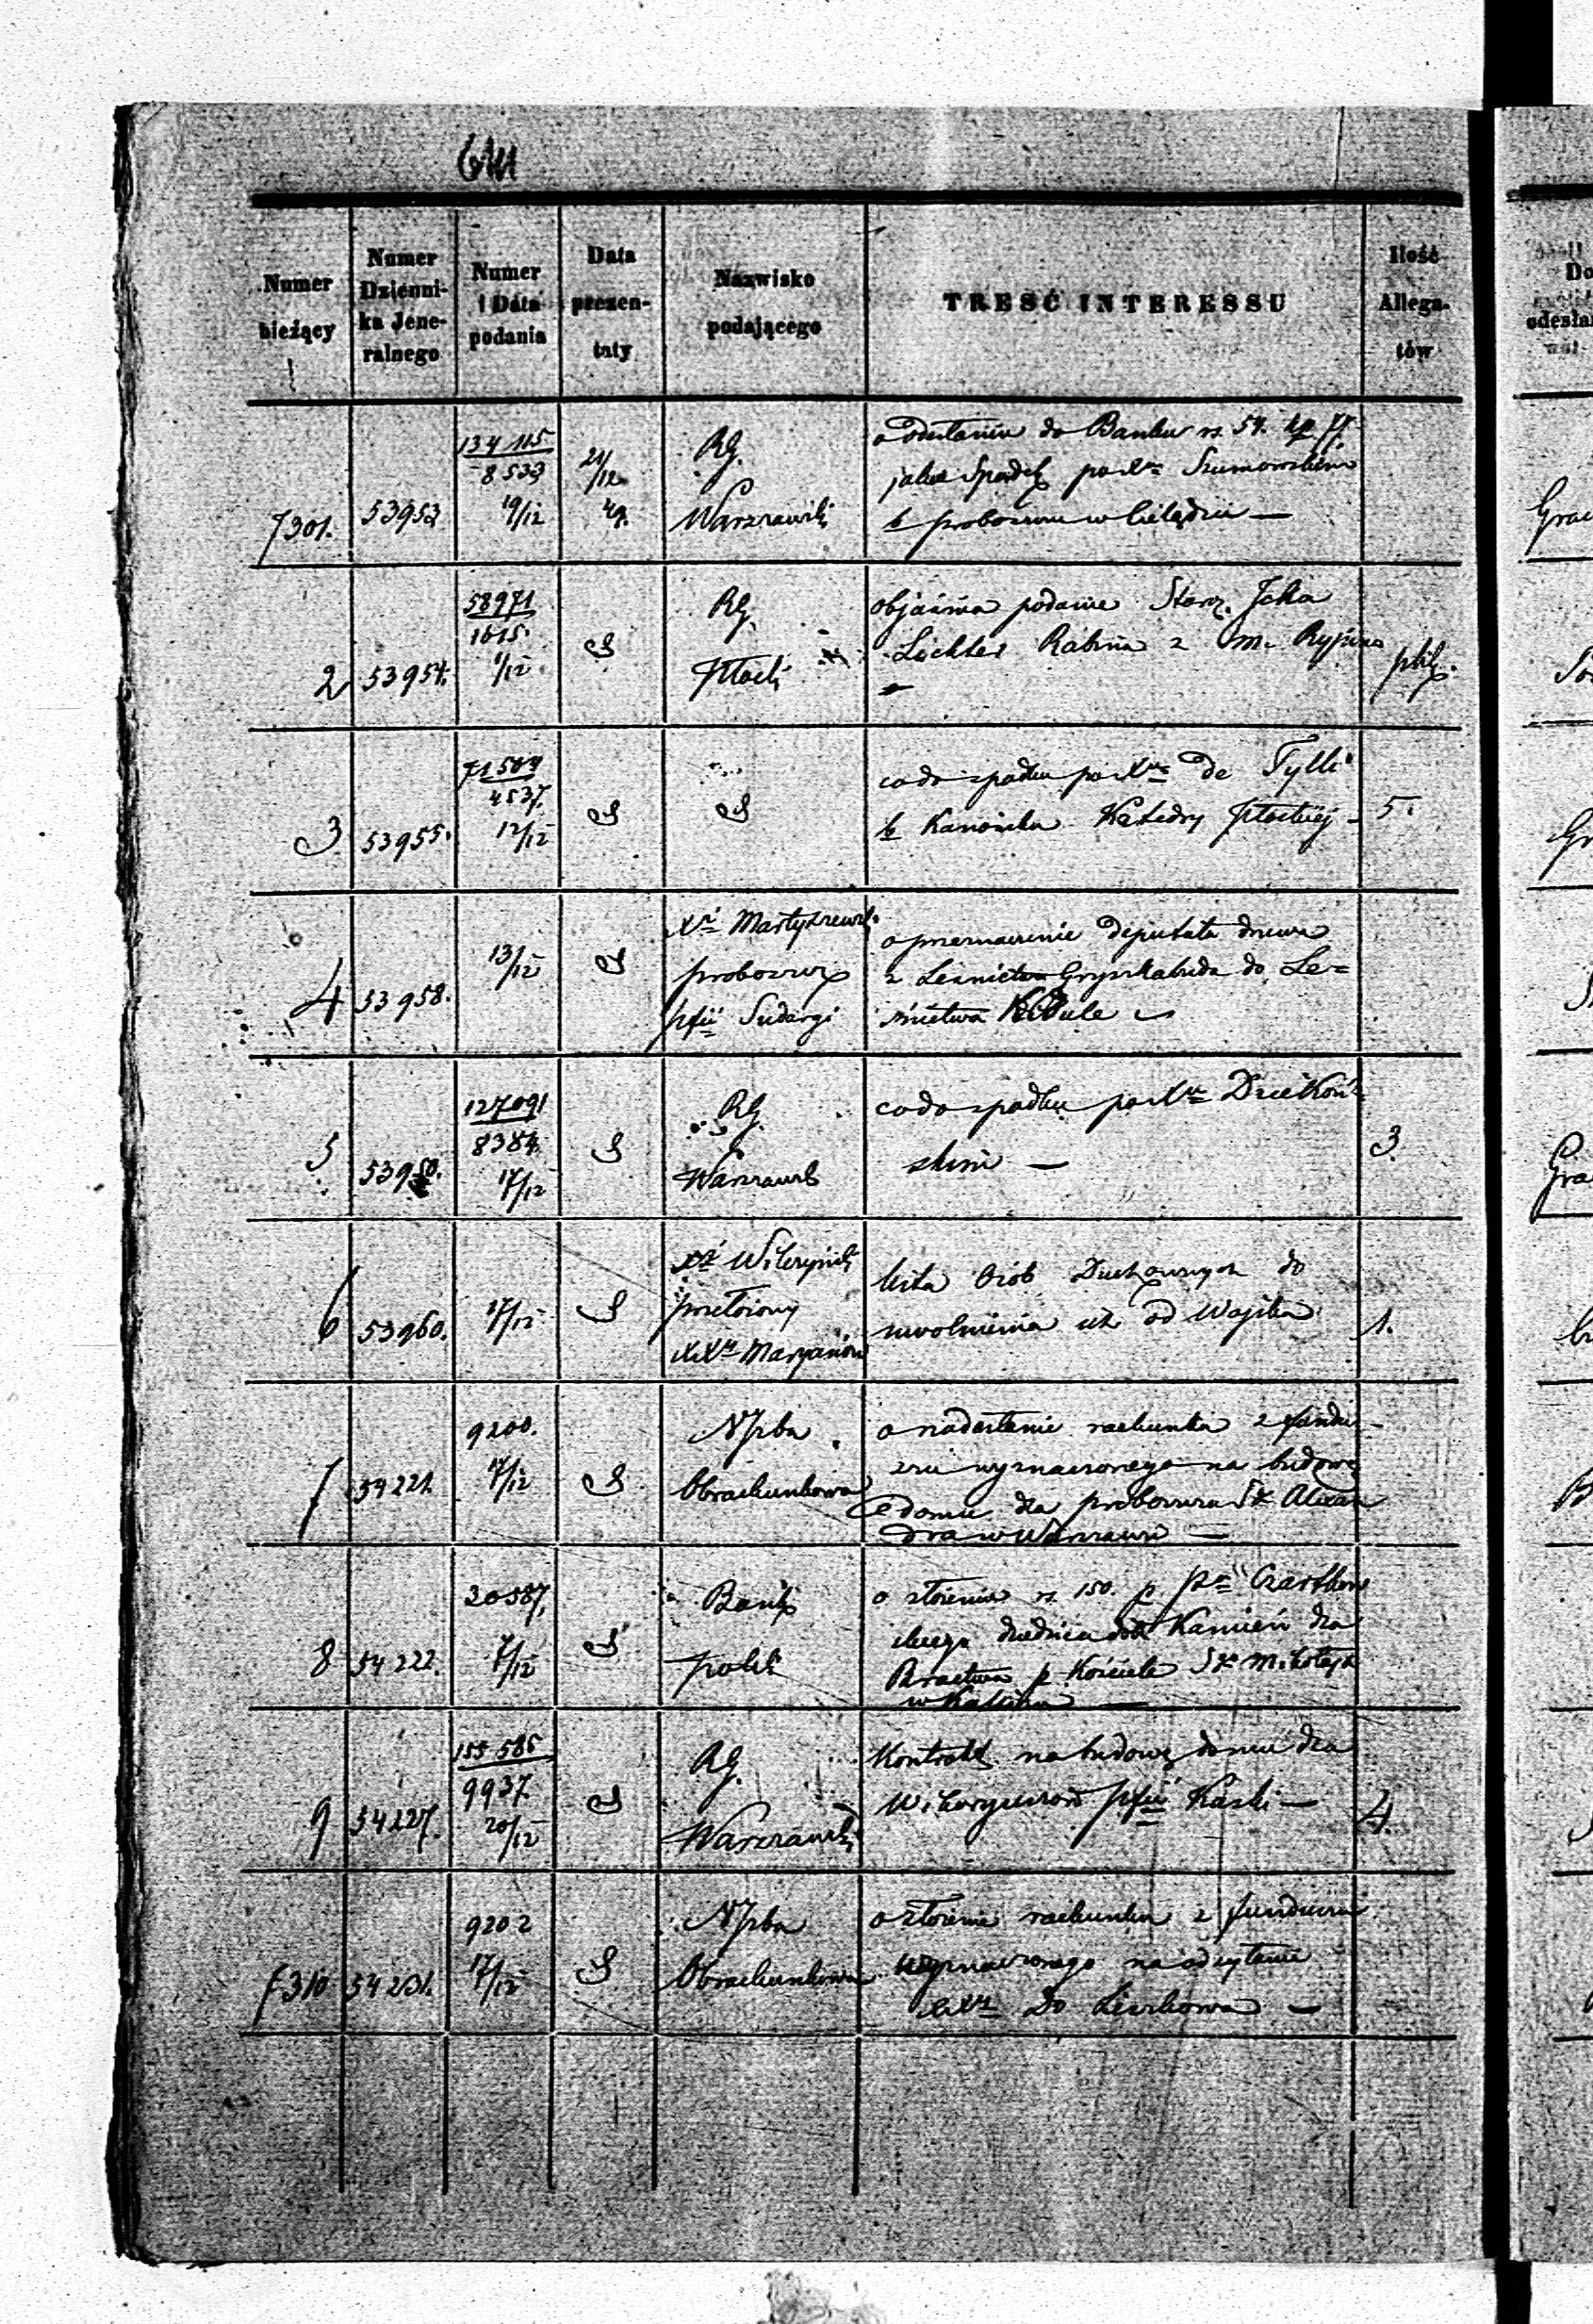 Numer bieżący
Numer Dzienni-ka Jene-ralnego
Numer i Data podania
Data prezen-taty
Nazwisko podającego
TREŚĆ INTERESSU
Ilość Allega-tów
7301. 53953
134 115
8533
19/12
21/12
49.
RG.
Warszawski
o odesłaniu do Banku rs. 54. kp. 77.
jako Spadek po Xr Szumowskim
b proboszczu w
2 53954.
58971
1615.
1/12
RG.
Płocki
objaśnia podanie Staroz. Icka
Lichter Rabina z m. Rypina
3 53955.
71504
4537.
12/12
co do spadku po Xr de Tylli
b Kanonika Katedry Płockiej
5.
4 53958.
13/12
proboszcz
pfii Sudargi
o przeznaczenie deputatu drzewa
z Leśnictwa Gryszkabuda do Le=
śnictwa
5 53959.
127091
8384.
17/12
RG.
Warszawski
co do spadku po Xr Dziekoń=
skim —
3.
6 53960.
17/12
przełożony
XXr Maryanów
lista Osób Duchownych do
uwolnienia ich od Wojska
1.
7 54221.
9200.
17/12
NIzba
Obrachunkowa
o nadesłanie rachunku z fundu-
szu wyznaczonego na budowę
domu dla proboszcza Sgo Alexan
dra w Warszawie —
8 54222.
20587.
7/12
Bank
polski
o złożeniu rs. 150. p
dziedzica dóbr Kamień dla
Bractwa p. Kościele Sgo Mikołaja
w Kaliszu —
9 54227.
155 585
9937.
20/12
RG.
Warszawski
Kontrakt na budowę domu dla
Wikaryuszów pfii Kaski —
4.
7310 54231.
9202
17/12
NIzba
Obrachunkowa
o złożenie rachunku z funduszu
wyznaczonego na odsyłanie
XXr do Liszkowa —